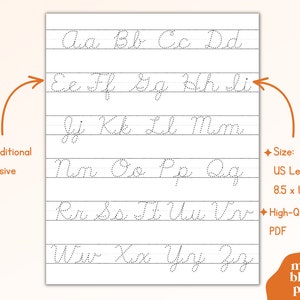 Aa Bb Cc Dd
Ee Ff Gg Hh Ii
Jj Kk Ll Mm
Nn Oo Pp Qq
Rr Ss Tt Uu Vv
Ww Xx Yy Zz
Size:
US Le
8.5 x 1
High-Q
PDF